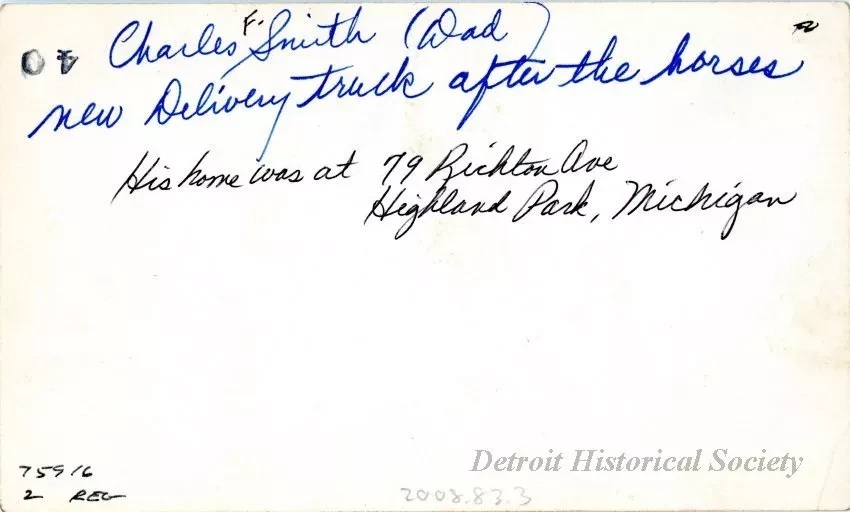 Charles F. Smith (Dad)
new Delivery truck after the horses
His home was at 79 Richton Ave
Highland Park, Michigan
75916
2 REG
Detroit Historical Society
2008.83.3